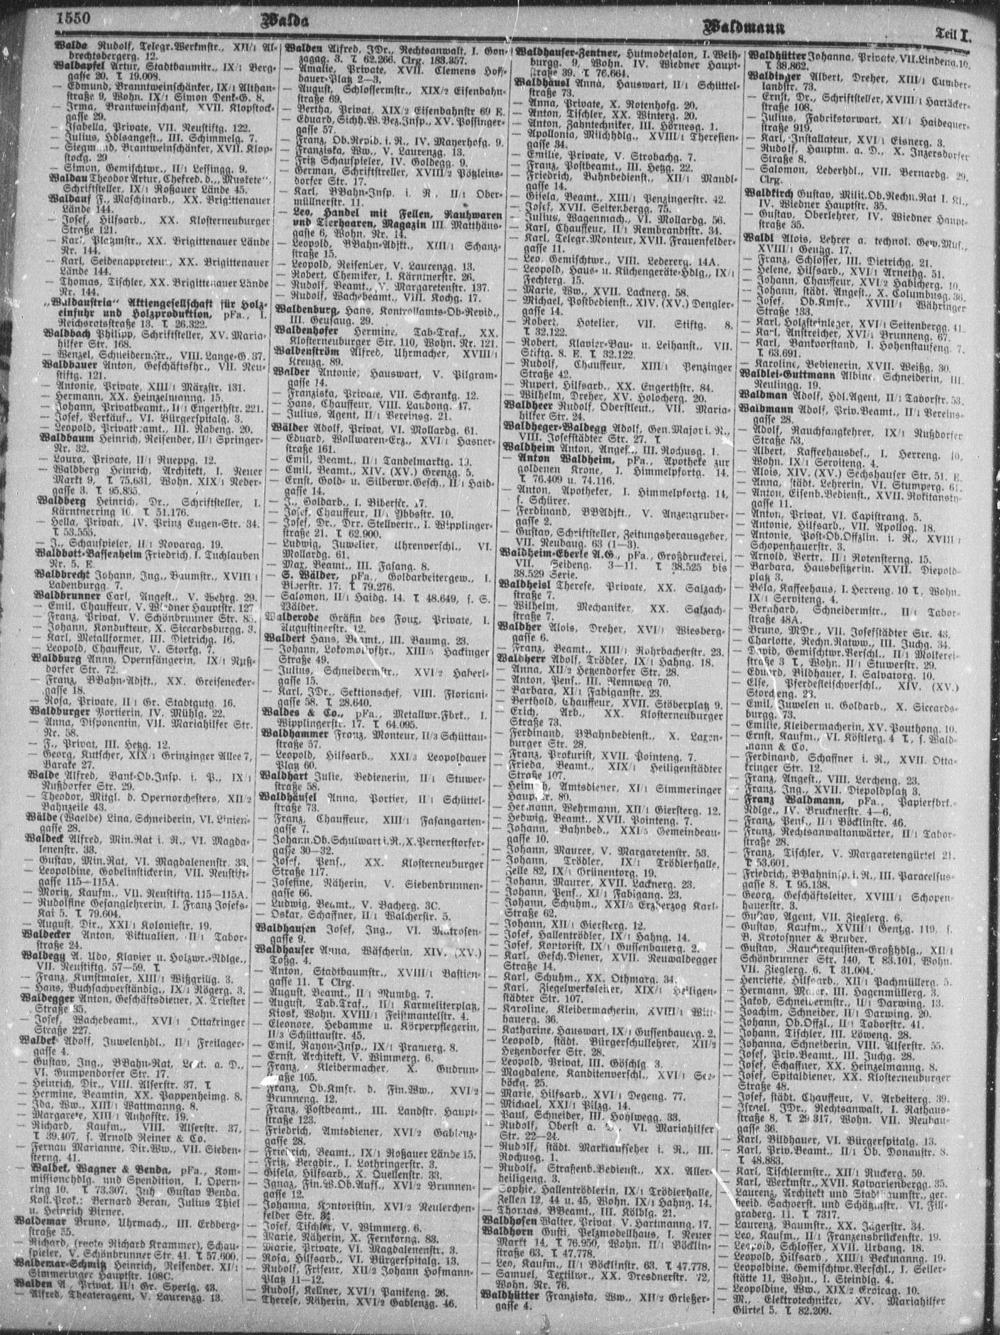 1550
Walda
Waldmann
Teil I.
Walda Rudolf, Telegr.Werkmstr., XII/1 Al-
brechtsbergerg. 12.
Waldapfel Artur, Stadtbaumitr., IX/1 Berg-
gasse 20. T 19.008.
— Edmund, Branntweinschänker, IX/1 Althan-
straße 9, Wohn. IX/1 Simon Denk-G. 8.
— Irma, Branntweinschank, XVII. Klopstock-
gasse 29.
— Isabella, Private, VII. Neustiftg. 122.
— Julius, Hdlsangest., III. Schimmelg. 7.
— Siegmund, Branntweinschänker, XVII. Klop-
stockg. 29
— Simon, Gemischtw., II/1 Lessingg. 9.
Waldau Theodor Artur, Chefred. d. „Muskete“,
Schriftsteller, IX/1 Roßauer Lände 45.
Waldauf F., Maschinarb., XX. Brigittenauer
Lände 144.
— Josef, Hilfsarb., XX. Klosterneuburger
Straße 121.
— Karl, Platzmstr., XX. Brigittenauer Lände
Nr. 144.
— Karl, Seidenappreteur, XX. Brigittenauer
Lände 144.
— Thomas, Tischler, XX. Brigittenauer Lände
Nr. 144.
„Waldaustria“ Aktiengesellschaft für Holz-
einfuhr und Holzproduktion, pFa., I.
Reichsratsstraße 13. T 26.322.
Waldbach Philipp, Schriftsteller, XV. Maria-
hilfer Str. 168.
— Wenzel, Schneidermstr., VIII. Lange-G. 37.
Waldbauer Anton, Geschäftsfhr., VII. Neu-
stiftg. 121.
— Antonie, Private, XIII/1 Märzstr. 131.
— Hermann, XX. Heinzelmanng. 15.
— Johann, Privatbeamt., II/1 Engerthstr. 221.
— Josef, Verkäuf., VI. Bürgerspitalg. 3.
— Leopold, Privatbeamt., III. Rabeng. 20.
Waldbaum Heinrich, Reisender, II/1 Springer-
Nr. 32.
— Laura, Private, II/1 Rueppg. 12.
— Waldberg Heinrich, Architekt, I. Neuer
Markt 9, T 75.631, Wohn. XIX/1 Reder-
gasse 3. T 95.835.
Waldberg Heinrich, Dr., Schriftsteller, I.
Kärntnerring 10. T 51.176.
— Hella, Private, IV. Prinz Eugen-Str. 34.
T 53.555.
— J., Schauspieler, II/1 Novarag. 19.
Waldbott-Bassenheim Friedrich, I. Tuchlauben
Nr. 5. E
Waldbrecht Johann, Ing., Baumstr., XVIII/1
Ladenburgg. 7.
Waldbrunner Carl, Angest., V. Wehrg. 29.
— Emil, Chauffeur, V. Wiedner Hauptstr. 127
— Franz, Privat, V. Schönbrunner Str. 85.
— Johann, Kondukteur, X. Siccardsburgg. 3.
— Karl, Metallformer, III. Dietrichg. 16.
— Leopold, Chauffeur, V. Storkg. 7.
Waldburg Anny, Opernsängerin, IX/1 Nuß-
dorfer Str. 72.
— Franz, BBahn-Adjkt., XX. Greisenecker-
gasse 18.
— Rosa, Private, II/1 Gr. Stadtgutg. 16.
Waldburger Portierin, IV. Mühlg. 22.
— Anna, Disponentin, VII. Mariahilfer Str.
Nr. 58.
— F., Privat, III. Hetzg. 12.
— Georg, Kutscher, XIX/1 Grinzinger Allee 7,
Barake 27.
Walde Alfred, Bank-Ob.Insp. i. P., IX/1
Nußdorfer Str. 29.
— Theodor, Mitgl. d. Opernorchesters, XII/2
Bahnzeile 43.
Wälde (Waelde) Lina, Schneiderin, VI. Linien-
gasse 28.
Waldeck Alfred, Min.Rat i. R., VI. Magda-
lenenstr. 33.
— Gustav, Min.Rat, VI. Magdalenenstr. 33.
— Leopoldine, Gobelinstickerin, VII. Neustift-
gasse 115—115A.
— Moritz, Kaufm., VII. Neustiftg. 115—115A.
— Rudolfine Gesanglehrerin, I. Franz Josefs-
Kai 5. T 79.604.
— August, Dir., XXI/1 Koloniestr. 19.
Waldecker Anton, Viktualien, II/1 Tabor-
straße 24.
Waldegg A. Udo, Klavier u. Holzwr.-Ndlge.,
VII. Neustiftg. 57—59. T
— Franz, Kunstmaler, XIII/1 Wißgrillg. 3.
— Hans, Buchsachverständig., IX/1 Rögerg. 3.
Waldegger Anton, Geschäftsdiener, X. Triester
Straße 35.
— Josef, Wachebeamt., XVI/1 Ottakringer
Straße 227.
Waldek Adolf, Juwelenhdl., II/1 Freilager-
gasse 4.
— Gustav, Ing., BBahn-Rat, Leut. a. D.,
VI. Gumpendorfer Str. 17.
— Heinrich, Dir., VIII. Alserstr. 37. T
— Hermine, Beamtin, XX. Pappenheimg. 8.
— Ida, Ww., XIII/1 Wattmanng. 8.
— Margarete, XIII/1 Auhofstr. 19.
— Richard, Kaufm., VIII. Alserstr. 37,
T 39.407, s. Arnold Reiner & Co.
— Fernau Marianne, Dir.Ww., VII. Sieben-
sterng. 41.
— Waldek, Wagner & Benda, pFa., Kom-
missionshdlg. und Spedition, I. Opern-
ring 10. T 73.307. Inh. Gustav Benda.
Koll.Prok.: Bernard Beran, Julius Thiel
u. Heinrich Birner.
Waldemar Bruno, Uhrmach., III. Erdberg-
straße 35.
— Richard, (recte Richard Krammer), Schau-
spieler, V. Schönbrunner Str. 41. T 57.600.
Waldemar-Schmitz Heinrich, Reisender, XII/1
Simmeringer Hauptstr. 108C.
Walden A., Privat, II/1 Gr. Sperlg. 43.
— Alfred, Theateragent, V. Laurenzg. 13.
Walden Alfred, JDr., Rechtsanwalt, I. Gon-
zagag. 3. T 62.266. Clrg. 183.357.
— Amalie, Private, XVII. Clemens Hoff-
bauer-Platz 2—3.
— August, Schlossermstr., XIX/2 Eisenbahn-
straße 69.
— Bertha, Privat, XIX/2 Eisenbahnstr 69 E.
— Eduard, Sichh.W.Bez.Insp., XV. Bossinger-
gasse 57.
— Franz, Ob.Revid. i. R., IV. Mayerhofg. 9.
— Franziska, Ww., V. Laurenzg. 13.
— Fritz Schauspieler, IV. Goldegg. 9.
— German, Schriftsteller, XVIII/2 Pötzleins-
dorfer Str. 17.
— Karl, BBahn-Insp. i. R II/1 Ober-
müllnerstr. 11.
— Leo, Handel mit Fellen, Rauhwaren
und Tierhaaren, Magazin III. Matthäus-
gasse 6, Wohn. Nr. 14.
— Leopold, BBahn-Adjkt., XIII/1 Schanz-
straße 15.
— Leopold, Reisender, V. Laurenzg. 13.
— Robert, Chemiker, I. Kärntnerstr. 26.
— Rudolf, Beamt., V. Margaretenstr. 137.
— Rudolf, Wachebeamt., VIII. Kochg. 17.
Waldenburg, Hans, Kontrollamts-Ob-Revid.,
III. Geusaug. 29.
Waldenhofer Hermine, Tab-Traf., XX.
Klosterneuburger Str. 110, Wohn. Nr. 121.
Waldenström Alfred, Uhrmacher, XVIII/1
Kreuzg. 89.
Walder Antonie, Hauswart, V. Pilgram-
gasse 14.
— Franziska, Private, VII. Schrankg. 12.
— Hans, Chauffeur, VIII. Laudong. 47.
— Julius, Agent, II/1 Vereinsg. 21.
Wälder Adolf, Privat, VI. Mollardg. 61.
— Eduard, Wollwaren-Erz., XVI/1 Hasner-
straße 161.
— Emil, Beamt., II/1 Tandelmarktg. 13.
— Emil, Beamt., XIV. (XV.) Grenzg. 5.
— Ernst, Gold- u. Silberwr.Gesch., II/1 Haid-
gasse 14.
— J., Goldarb., I. Biberstr. 17.
— Josef, Chauffeur, II/1 Ybbsstr. 10.
— Josef, Dr., Drr. Stellvertr., I. Wipplinger-
straße 21. T 62.900.
— Ludwig, Juwelier, Uhrenverschl., VI.
Mollardg. 61.
— Max, Beamt., III. Fasang. 8.
— S. Wälder, pFa., Goldarbeitergew., I.
Biberstr. 17. T 79.276.
— Salomon, II/1 Haidg. 14. T 48.649, s. S.
Wälder.
Walderode Gräfin des Four, Private, I.
Augustinerstr. 12.
Waldert Hans, Beamt., III. Baumg. 23.
— Johann, Lokomotivfhr., XIII/5 Hackinger
Straße 49.
— Julius, Schneidermstr., XVI/2 Haberl-
gasse 15.
— Karl, JDr., Sektionschef, VIII. Floriani-
gasse 58. T 28.640.
Waldes & Co., pFa., Metallwr.Fbrk., I.
Wipplingerstr. 17. T 64.095.
Waldhammer Franz, Monteur, II/3 Schüttau-
straße 57.
— Leopold, Hilfsarb., XXI/3 Leopoldauer
Platz 60.
Waldhart Julie, Bedienerin, II/1 Stuwer-
straße 58.
Waldhäusel Anna, Portier, II/1 Schüttel-
straße 73.
— Franz, Chauffeur, XIII/1 Fasangarten-
gasse 7.
— Johann, Ob.Schulwart i.R., X. Pernerstorfer-
gasse 30—32.
— Josef, Pens., XX. Klosterneuburger
Straße 117.
— Josefine, Näherin, V. Siebenbrunnen-
gasse 66.
— Ludwig, Beamt., V. Bacherg. 3C.
— Oskar, Schaffner, II/1 Walcherstr. 5.
Waldhausen Josef, Ing., VI. Matrosen-
gasse 9.
Waldhauser Anna, Wäscherin, XIV. (XV.)
Toßg. 4.
— Anton, Stadtbaumstr., XVIII/1 Bastien-
gasse 11. T Clrg.
— August, Beamt., II/1 Rumbg. 7.
— August, Tab.Traf., II/1 Karmeliterplatz,
Kiosk, Wohn. XVIII/1 Feistmantelstr. 1.
— Eleonore, Hebamme u. Körperpflegerin,
II/3 Schüttaustr. 45.
— Emil, Rayon-Insp., IX/1 Pramerg. 8.
— Ernst, Architekt, V. Wimmerg. 6.
— Franz, Kleidermacher, X. Gudrun-
straße 105.
— Franz, Ob.Kmsr. d. Fin.Ww., XVI/2
Brunneng. 12.
— Franz, Postbeamt., III. Landstr. Haupt-
straße 123.
— Friedrich, Amtsdiener, XVI/2 Gablenz-
gasse 28.
— Friedrich, Beamt., IX/1 Roßauer Lände 15.
— Fritz, Bergdir., I. Lothringerstr. 3.
— Gisela, Hilfsarb., X. Quellenstr. 33.
— Ignaz, Fin.W.Ob.Auff., XVI/2 Brunnen-
gasse 12.
— Johanna, Kontoristin, XVI/2 Neulerchen-
felder Str. 32
— Josef, Tischler, V. Wimmerg. 6.
— Marie, Näherin, X. Fernkorng. 83.
— Marie, Private, VI. Magdalenenstr. 3.
— Rosa, Hilfsarb., VI. Bürgerspitalg. 13.
— Rudolf, Friseur, XII/2 Johann Hofmann-
Platz 11—12.
— Rudolf, Kellner, XVI/1 Panikeng. 26.
— Therese, Näherin, XVI/2 Gablenzg. 46.
Waldhauser-Zentner, Hutmodesalon, I. Weih-
burgg. 9, Wohn. IV. Wiedner Haupt-
straße 39. T 76.664.
Waldhäusl Anna, Hauswart, II/1 Schüttel-
straße 73.
— Anna, Private, X. Rotenhofg. 20.
— Anton, Tischler, XX. Winterg. 20.
— Anton, Zahntechniker, III. Hörnesg. 1.
— Apollonia, Milchhdlg., XVIII/1 Theresien-
gasse 34.
— Emilie, Private, V. Strobachg. 7.
— Franz, Postbeamt., III. Hetzg. 22.
— Friedrich, Bahnbedienst., XII/1 Mandl-
gasse 14.
— Gisela, Beamt., XIII/1 Penzingerstr. 42.
— Josef, XVII. Seitenbergg. 75.
— Julius, Wagennach., VI. Mollardg. 56.
— Karl, Chauffeur, II/1 Rembrandtstr. 34.
— Karl, Telegr.Monteur, XVII. Frauenfelder-
gasse 11.
— Leo, Gemischtwr., VIII. Ledererg. 14A.
— Leopold, Haus- u. Küchengeräte-Hdlg., IX/1
Fechterg. 15.
— Marie, Ww., XVII. Lacknerg. 58.
— Michael, Postbedienst., XIV. (XV.) Dengler-
gasse 14.
— Robert, Hotelier, VII. Stiftg. 8.
T 32.122.
— Robert, Klavier-Bau- u. Leihanst., VII.
Stiftg. 8. E. T 32.122.
— Rudolf, Chauffeur, XIII/1 Penzinger
Straße 42.
— Rupert, Hilfsarb., XX. Engerthstr. 84.
— Wilhelm, Dreher, XV. Holocherg. 20.
Waldheer Rudolf, Oberstleut., VII. Maria-
hilfer Str. 24.
Waldheger-Waldegg Adolf, Gen.Major i. R.,
VIII. Josefstädter Str. 27. T
Waldheim Anton, Angest., III. Rochusg. 1.
— Anton Waldheim, pFa., Apotheke zur
goldenen Krone, I. Himmelpfortg. 14.
T 76.409 u. 74.116.
— Anton, Apotheker, I. Himmelpfortg. 14.
I. Schülerstr.
— Ferdinand, BBAdjkt., V. Anzengruber-
gasse 2.
— Gustav, Schriftsteller, Zeitungsherausgeber,
VII. Neubaug. 63 (1—3).
Waldheim-Eberle A.G., pFa., Großdruckerei,
VII. Seideng. 3—11. T 38.525 bis
38.529 Serie.
Waldheisl Therese, Private, XX. Salzach-
straße 7.
— Wilhelm, Mechaniker, XX. Salzach-
straße 7.
Waldher Alois, Dreher, XVI/1 Wiesberg-
gasse 6.
— Franz, Beamt., XIII/1 Rohrbacherstr. 23.
Waldherr Adolf, Trödler, IX/1 Hahng. 18.
— Anna, XII/2 Hetzendorfer Str. 28.
— Anton, Pens., III. Rennweg 70.
— Barbara, XI/1 Fabiganstr. 23.
— Berthold, Chauffeur, XVII. Stöberplatz 9.
— Erich, Arb., XX. Klosterneuburger
Straße 73.
— Ferdinand, BBahnbedienst., X. Laxen-
burger Str. 28.
— Franz, Prokurist, XVII. Pointeng. 7.
— Frieda, Beamt., XIX/1 Heiligenstädter
Straße 107.
— Heinrich, Amtsdiener, XI/1 Simmeringer
Hauptstr. 89.
— Hermann, Wehrmann, XII/1 Gierstergg. 12.
— Hedwig, Beamt., XVII. Pointeng. 7.
— Johann, Bahnbed., XXI/5 Gemeindeau-
gasse 10.
— Johann, Maurer, V. Margaretenstr. 53.
— Johann, Trödler, IX/1 Trödlerhalle,
Zelle 82, IX/1 Grünentorg. 19.
— Johann, Maurer, XVII. Lacknerg. 23.
— Johann, Pens., XI/1 Fabigang. 23.
— Johann, Schuhm., XXI/5 Erzherzog Karl-
Straße 62.
— Johann, XII/1 Gierstergg. 12.
— Josef, Hallentrödler, IX/1 Hahng. 14.
— Josef, Kontorist, IX/1 Gussenbauerg. 2.
— Karl, Gesch.Diener, XVII. Neuwaldegger
Straße 14.
— Karl, Schuhm., XX. Othmarg. 34.
— Karl, Ziegelwerksleiter, XIX/1 Heiligen-
städter Str. 107.
— Karoline, Kleidermacherin, XVIII/1 Witt-
hauerg. 36.
— Katharine, Hauswart, IX/1 Gussenbauerg. 2.
— Leopold, städt. Bürgerschullehrer, XII/2
Hetzendorfer Str. 28.
— Leopold, Privat, III. Göschlg. 3.
— Magdalene, Kanditenverschl., XVI/1 See-
böckg. 25.
— Marie, XVI/1 Degeng. 77.
— Michael, XXI/1 Pilzg. 14.
— Paul, Schneider, III. Hohlwegg. 33.
— Rudolf, Oberst a. D., VI. Mariahilfer
Str. 22—24.
— Rudolf, städt. Marktaufseher i. R., III.
Rochusg. 1.
— Rudolf, Straßenb.Bedienst., XX. Aller-
heiligeng. 3.
— Sophie, Hallentrödlerin, IX/1 Trödlerhalle,
Zellen 12, 44 u. 45, Wohn. IX/1 Hahng. 14.
— Thomas, BBeamt., III. Kölblg. 21.
Waldhofen Walter, Privat, V. Hartmanng. 17.
Waldhorn Gusti, Pelzmodellhaus, I. Neuer
Markt 14, T 76.950, Wohn. II/1 Böcklin-
straße 63. T 47.778.
— Leo, Kaufm., II/1 Böcklinstr. 63. T 47.778.
— Samuel, Textilwr., XX. Dresdnerstr. 72,
Wohn. Nr. 76.
Waldhütter Franziska, Ww., XII/2 Grießer-
gasse 4.
Waldhütter Johanna, Private, VII. Lindeng. 10.
T 38.862.
Waldinger Albert, Dreher, XIII/1 Cumber-
landstr. 73.
— Ernst, Dr., Schriftsteller, XVIII/1 Hartäcker-
straße 108.
— Julius, Fabrikstorwart, XI/1 Haidequer-
straße 919.
— Karl, Installateur, XVI/1 Eisnerg. 3.
— Rudolf, Hauptm. a. D., X. Inzersdorfer
Straße 8.
— Salomon, Lederhdl., VII. Bernardg. 29.
Clrg.
Waldkirch Gustav, Milit.Ob.Rechn.Rat i. R.,
IV. Wiedner Hauptstr. 35.
— Gustav, Oberlehrer, IV. Wiedner Haupt-
straße 35.
Waldl Alois, Lehrer a. technol. Gew.Mus.,
XVIII/1 Genzg. 17.
— Franz, Schlosser, III. Dietrichg. 21.
— Helene, Hilfsarb., XVI/1 Arnethg. 51.
— Johann, Chauffeur, XVI/2 Habicherg. 10.
— Johann, städt. Angest., X. Columbusg. 36.
— Josef, Ob.Kmsr., XVIII/1 Währinger
Straße 133.
— Karl, Holzsteinleger, XVI/1 Seitenbergg. 41.
— Karl, Anstreicher, XVI/1 Brunneng. 67.
— Karl, Bankvorstand, I. Hohenstaufeng. 7.
T 63.691.
— Karoline, Bedienerin, XVII. Weißg. 30.
Waldlei-Guttmann Albine, Schneiderin, III.
Reulingg. 19.
Waldman Adolf, Hdl.Agent, II/1 Taborstr. 53.
Waldmann Adolf, Priv.Beamt., II/1 Vereins-
gasse 28.
— Adolf, Rauchfangkehrer, IX/1 Nußdorfer
Straße 53.
— Albert, Kaffeehausbes., I. Herreng. 10,
Wohn. IX/1 Serviteng. 4.
— Alois, XIV. (XV.) Sechshauser Str. 51. E.
— Anna, städt. Lehrerin, VI. Stumperg. 61.
— Anton, Eisenb.Bedienst., XVII. Rokitansky-
gasse 11.
— Anton, Privat, VI. Capistrang. 5.
— Antonie, Hilfsarb., VII. Apollog. 18.
— Antonie, Post-Ob.Offzlin. i. R., XVIII/1
Schopenhauerstr. 3.
— Arnold, Vertr., II/1 Rotensterng. 15.
— Barbara, Hausbesitzerin, XVII. Diepold-
platz 3.
— Béla, Kaffeehaus, I. Herreng. 10 T, Wohn.
IX/1 Serviteng. 4.
— Bernhard, Schneidermstr., II/1 Tabor-
straße 48A.
— Bruno, MDr., VII. Josefstädter Str. 43.
— Charlotte, Rechn.Ratww., III. Juchg. 34.
— David, Gemischtwr.Verschl., II/1 Molkerei-
straße 3 T, Wohn. II/1 Stuwerstr. 29.
— Eduard, Bildhauer, I. Salvatorg. 10.
— Else, Pferdefleischverschl., XIV. (XV.)
Storcheng. 23.
— Emil, Juwelen u. Goldarb., X. Siccards-
burgg. 73.
— Emilie, Kleidermacherin, XV. Pouthong. 10.
— Ernst, Kaufm., VI. Köstlerg. 4 T, s. Wald-
mann & Co.
— Ferdinand, Schaffner i. R., XVII. Otta-
kringer Str. 12.
— Franz, Angest., VIII. Lercheng. 23.
— Franz, Ing., XVII. Diepoldplatz 3.
— Franz Waldmann, pFa., Papierfbrk.-
Ndlge., IV. Brucknerstr. 4—6.
— Franz, Pens., II/1 Böcklinstr. 46.
— Franz, Rechtsanwaltanwärter, II/1 Tabor-
straße 28.
— Franz, Tischler, V. Margaretengürtel 21.
T 53.601.
— Friedrich, BBahninsp. i. R., III. Paracelsus-
gasse 8. T 95.138.
— Georg, Geschäftsleiter, XVIII/1 Schopen-
hauerstr. 3.
— Gustav, Agent, VII. Zieglerg. 6.
— Gustav, Kaufm., XVIII/1 Gentzg. 119, s.
B. Krotoschner & Bruder.
— Gustav, Rauchrequisiten-Großhdlg., XII/1
Schönbrunner Str. 140, T 83.101, Wohn.
VII. Zieglerg. 6. T 31.004.
— Henriette, Hilfsarb., XII/1 Pachmüllerg. 5.
— Hermann, Maler, III. Hagenmüllerg. 3.
— Jakob, Schneidermstr., II/1 Darwing. 13.
— Joachim, Schneider, II/1 Darwing. 20.
— Johann, Ob.Offzl., II/1 Taborstr. 41.
— Johann, Tischler, III. Löweng. 28.
— Johanna, Schneiderin, VIII. Alserstr. 55.
— Josef, Priv.Beamt., III. Juchg. 28.
— Josef, Schaffner, XX. Heinzelmanng. 8.
— Josef, Spitaldiener, XX. Klosterneuburger
Straße 48.
— Josef, städt. Chauffeur, V. Arbeiterg. 39.
— Israel, JDr., Rechtsanwalt, I. Rathaus-
straße 8, T 29 317, Wohn. VII. Neubau-
gasse 36.
— Karl, Bildhauer, VI. Bürgerspitalg. 13.
— Karl, Priv.Beamt., II/1 Ob. Donaustr. 8.
T 48.883.
— Karl, Tischlermstr., XII/1 Ruckerg. 59.
— Karl, Werkmstr., XVII. Kolvarienbergg. 35.
— Laurenz, Architekt und Stadtbaumstr., ger.
beeid. Sachverst. und Schätzmstr., VI. Fill-
graderg. 11. T 7317.
— Laurenz, Baumstr., XX. Jägerstr. 34.
— Leo, Kaufm., II/1 Franzensbrückenstr. 19.
— Leopold, Schlosser, XVII. Urbang. 18.
— Leopold, Hilfsarb., XIII/1 Beckmanng. 19.
— Leopoldine, Gemischtwr.Verschl., I. Seiler-
stätte 11, Wohn. I. Steindlg. 4.
— Leopoldine, Ww., XIX/2 Eroicag. 10.
— M., Elektrotechniker, XV. Mariahilfer
Gürtel 5. T 82.209.